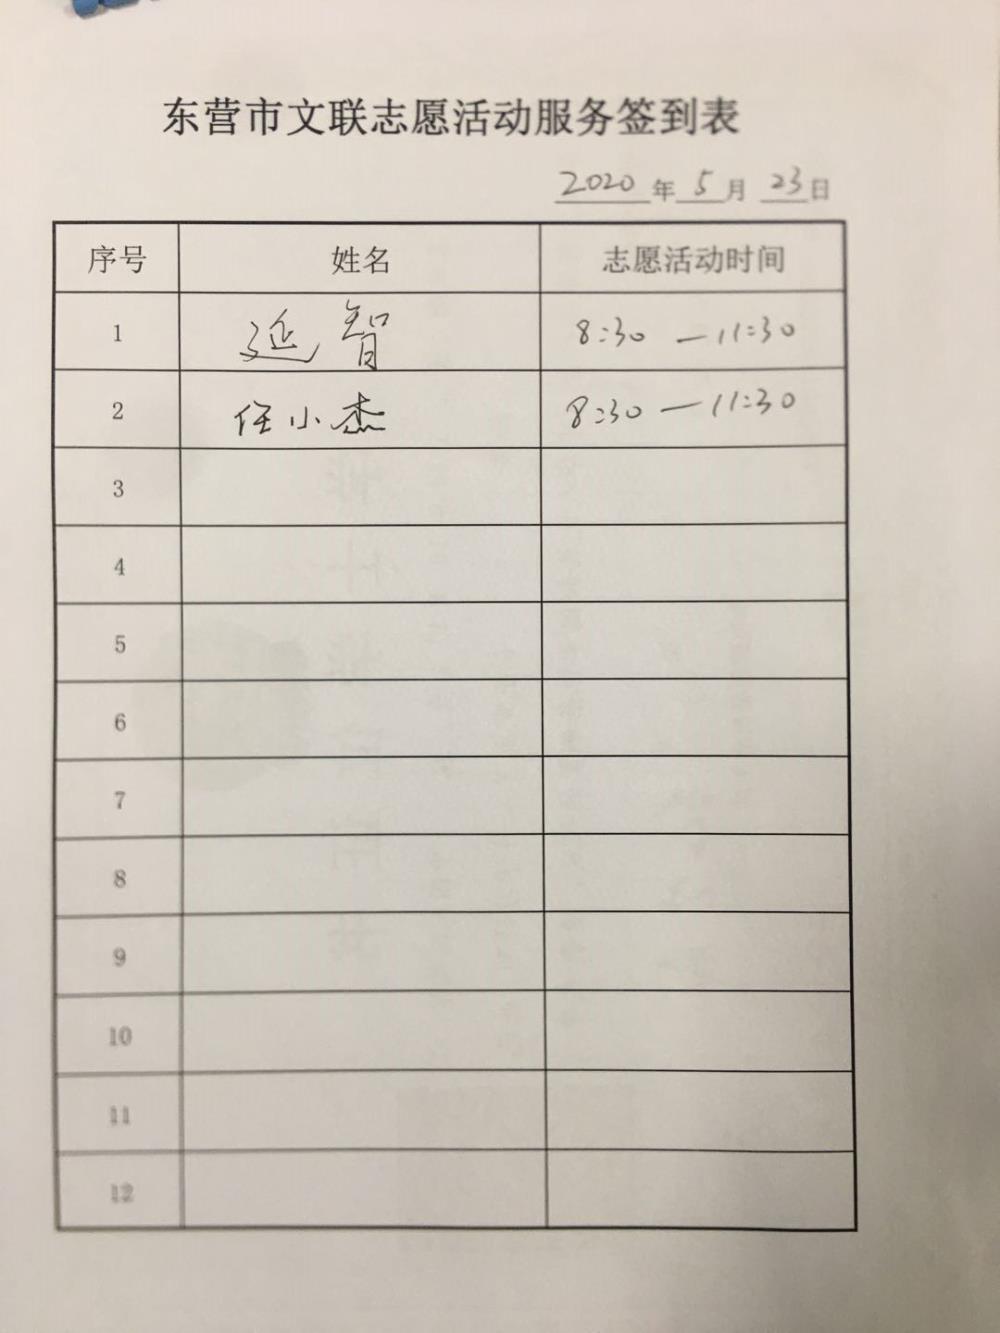 东营市文联志愿活动服务签到表
2020年5月23日
序号 姓名 志愿活动时间
1 延智 8:30 — 11:30
2 任小杰 8:30 — 11:30
3
4
5
6
7
8
9
10
11
12